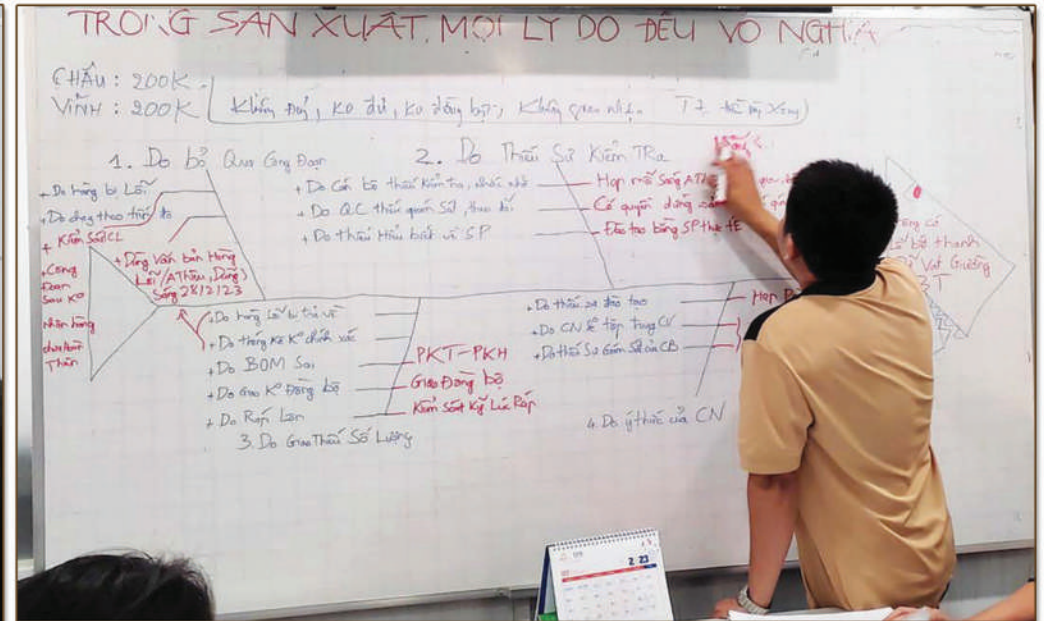 TRONG SẢN XUẤT, MỌI LÝ DO ĐỀU VÔ NGHĨA
CHÂU : 200K
VINH : 200K
Không, ko đủ, ko đồng bộ, không
1. Do bỏ Qua Công Đoạn
+ Do hàng bị Lỗi
+ Do chạy theo tiến độ
+ Kiểm Soát CL
+ Công Đoạn Sau Ko
nhận hàng
+ Dùng Văn bản Hàng
Lỗi (A Thâu, Dũng)
Sáng 28/2/23
2. Do Thiếu Sự Kiểm TRa
+ Do Cán bộ thiếu Kiểm tra, nhắc nhở
+ Do QC thiếu giám Sát, theo dõi
+ Do thiếu Hiểu biết về SP
Họp mỗi Sáng
Có quyền dừng
Đào tạo bằng SP thực tế
+ Do hàng Lỗi bị trả về
+ Do thống Kê Ko chính xác
+ Do BOM Sai
+ Do Giao Ko Đồng bộ
+ Do Ráp Lẫn
PKT-PKH
Giao Đồng bộ
Kiểm Soát Kỹ Lúc Ráp
3. Do Giao Thiếu Số Lượng
+ Do thiếu sự đào tạo
+ Do CN ko tập trung CV
+ Do thiếu Sự Giám Sát của CB
Họp
4. Do ý thức của CN
thanh
Vạt Giường
3T
2 23